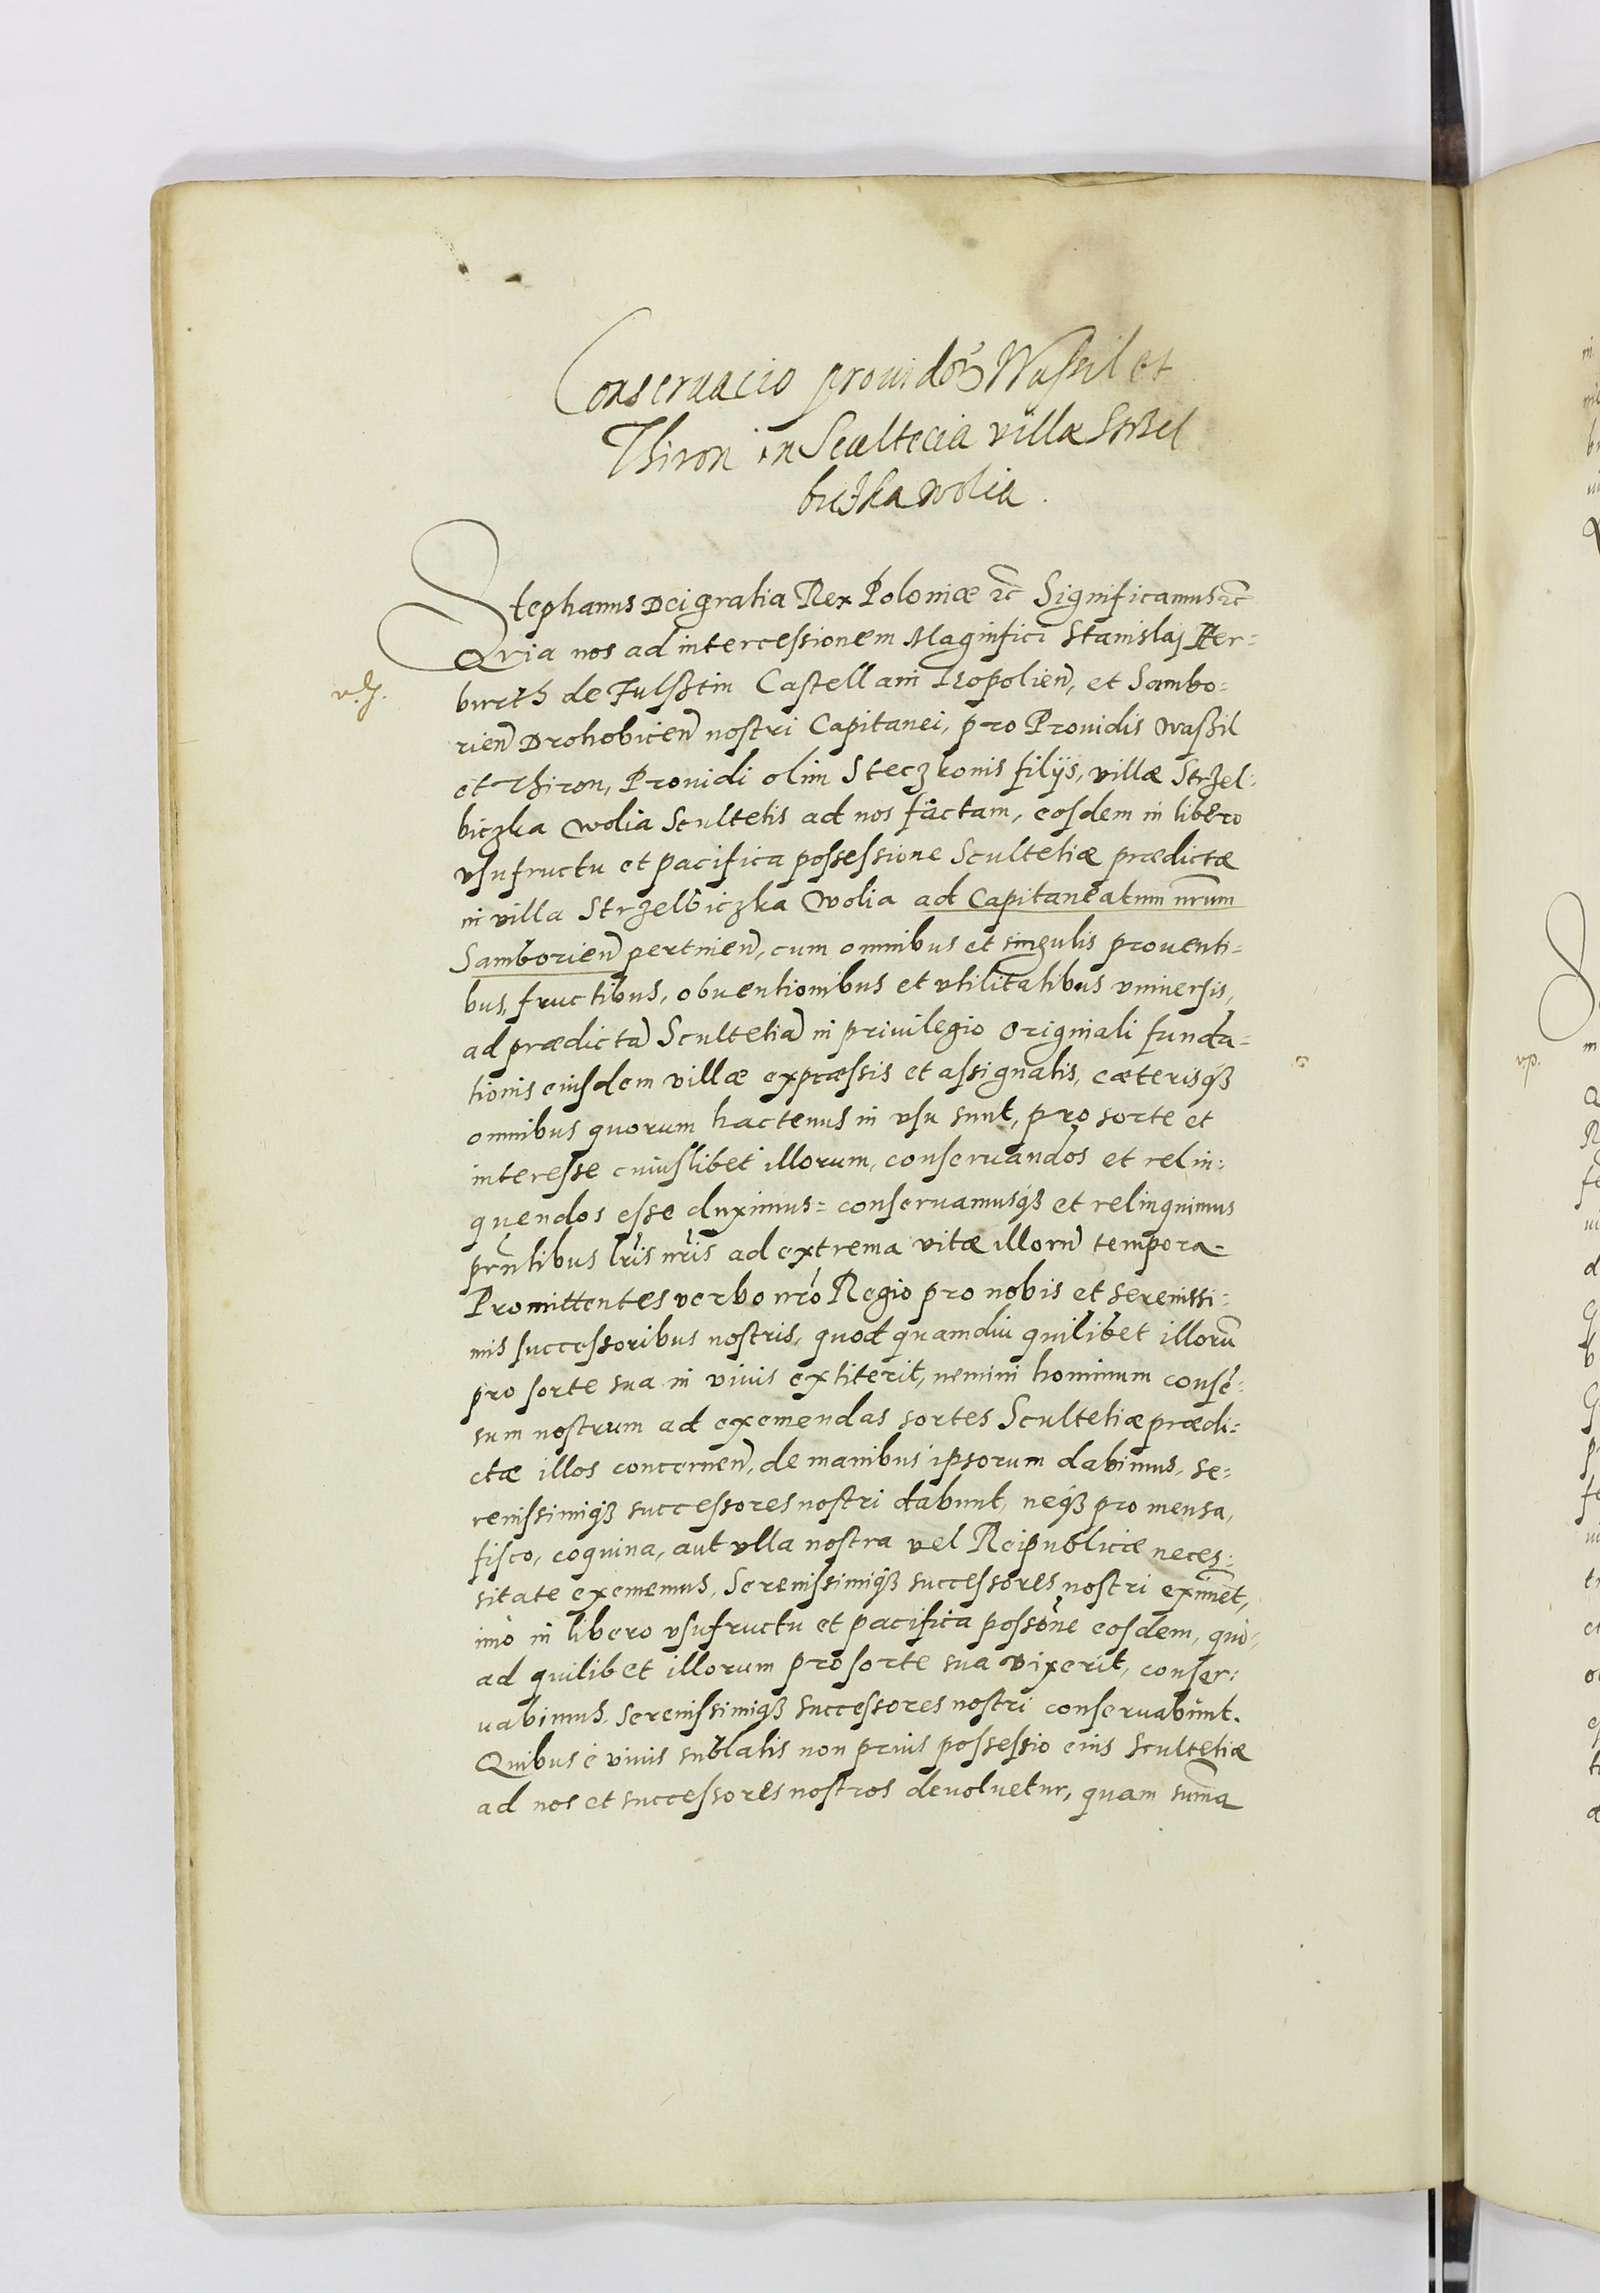 Conseruacio prouidor̃ Wassil et
Thiron in Scultecia villæ Strzel
biczka wolia.
Stephanus Dei gratia Rex Poloniæ ꝛc̃ Significamus ꝛc̃
Quia nos ad intercessionem Magnifici Stanislaj Her-
burth de Fulsztin Castellani Leopolien̄, et Sambo-
rien̄ Drohobicen̄ nostri Capitanei, pro Prouidis Waszil
et Thiron, Prouidi olim Steczkonis filijs, villæ Strzel-
biczka Wolia Scultetis ad nos factam, eosdem in libero
vsufructu et pacifica possessione Scultetiæ prædictæ
in villa Strzelbiczka Wolia ad Capitaneatum nr̃um
Samborien̄ pertinen̄, cum omnibus et singulis prouenti-
bus, fructibus, obuentionibus et vtilitatibus vniuersis,
ad prædictā Scultetiā in priuilegio originali funda-
tionis eiusdem villæ expræssis et assignatis, cæterisqȝ
omnibus quorum hactenus in vsu sunt, pro sorte et
interesse cuiuslibet illorum, conseruandos et relin-
quendos esse duximus = conseruamusqȝ et relinquimus
pr̄ntibus lr̃is nr̃is ad extrema vitæ illorū tempora.
Promittentes verbo nr̃o Regio pro nobis et serenissi-
mis successoribus nostris, quod quamdiu quilibet illorū
pro sorte sua in viuis extiterit, nemini hominum consē-
sum nostrum ad exemendas sortes Scultetiæ prædi-
ctæ illos concernen̄, de manibus ipsorum dabimus, se-
renissimiqȝ successores nostri dabunt, neqȝ pro mensa,
fisco, coquina, aut vlla nostra vel Reipublicæ neces-
sitate exememus, Serenissimiqȝ successores nostri eximēt,
imò in libero vsufructu et pacifica possōne eosdem, quo-
ad quilibet illorum pro sorte sua vixerit, conser-
uabimus, Serenissimiqȝ successores nostri conseruabunt.
Quibus è viuis sublatis non prius possessio eius scultetiæ
ad nos et successores nostros deuoluetur, quam sum̄a
vp.